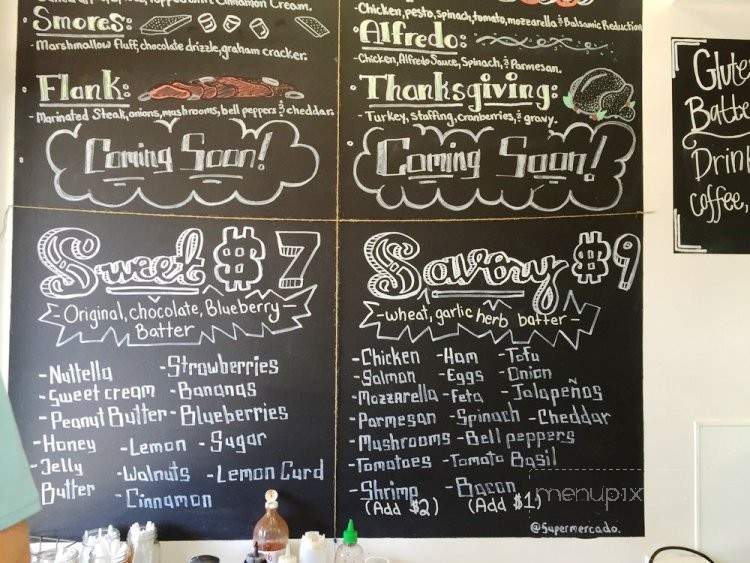 Cinnamon Cream.
Smores:
-Marshmallow Fluff, chocolate drizzle, graham cracker.
Flank:
-Marinated Steak, onions, mushrooms, bell peppers & cheddar.
Coming Soon!
-Chicken, pesto, spinach, tomato, mozzarella & Balsamic Reduction
Alfredo:
-Chicken, Alfredo Sauce, Spinach, & Parmesan.
Thanksgiving:
-Turkey, staffing, cranberries, & gravy.
Coming Soon!
Glute
Batte
Drin
coffee,
Sweet $7
Original, chocolate, Blueberry
Batter
-Nuttella -Strawberries
-Sweet cream -Bananas
-Peanut Butter -Blueberries
-Honey -Lemon -Sugar
-Jelly -Walnuts -Lemon Curd
Butter -Cinnamon
Savory $9
-wheat, garlic herb batter-
-Chicken -Ham -Tofu
-Salmon -Eggs -Onion
-Mozzarella -Feta -Jalapeños
-Parmesan -Spinach -Cheddar
-Mushrooms -Bell peppers
-Tomatoes -Tomato Basil
-Shrimp -Bacon
(Add $2) (Add $1)
menupix
@Supermercado.